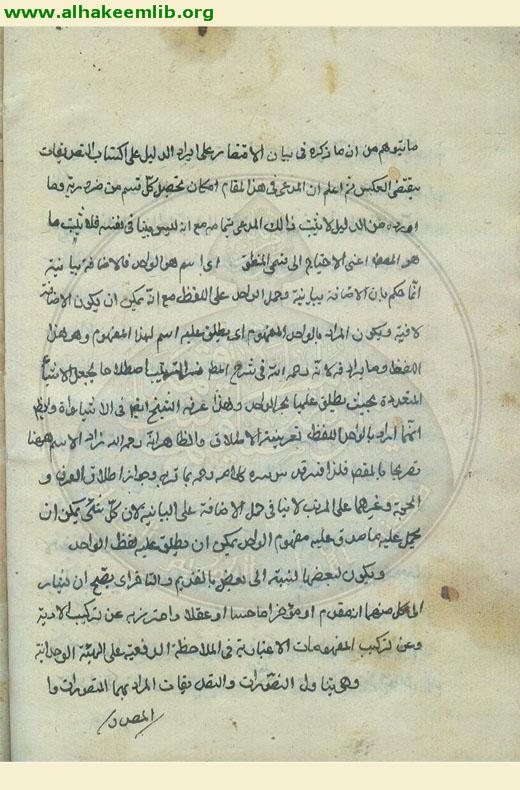 www.alhakeemlib.org
ما يتوهم من ان ما ذكره فى بيان الاقتصار على ايراد الدليل على اكتساب التصديقات
يقتضى العكس ثم اعلم ان المدعى فى هذا المقام امكان تحصيل كل قسم من ضروريه وما
اورده من الدليل لا يثبت ذلك المدعى بتمامه مع انه ليس مبينا فى نفسه فلا يثبت ما
هو المقصد اعنى الاحتياج الى قسمى المنطق اى اسم هو الواحد فالاضافة بيانية
انما حكم بان الاضافة بيانية وحمل الواحد على اللفظ مع انه يمكن ان يكون الاضافة
لامية ويكون المراد بالواحد المفهوم اى يطلق عليه اسم لهذا المفهوم وهو هذا
اللفظ وما يرادفه لانه رحمه الله فى شرح المطالع الترتيب اصطلاحا يجعل الاشياء
المتعددة بحيث يطلق عليها الواحد وهكذا عرفه الشيخ ايضا فى
انما اراد بالواحد اللفظ بقرينة الاطلاق والظاهر انه رحمه الله زاد الاسم ههنا
تصريحا بالمقصد فلذا قدس سره كلامه رحمه بما ترى وجواز اطلاق العدى و
الحجى وغيرهما على المرتب لا ينافى حمل الاضافة على البيانية لان كل شئ يمكن ان
يحمل عليه ما صدق عليه مفهوم الواحد يمكن ان يطلق عليه لفظ الواحد
ويكون لبعضها نسبة الى بعض بالتقديم والتاخر اى يصح ان يشار
الى كل منهما انه مقدم او مؤخر اما حسا او عقلا واحترز به عن تركيب الادوية
وعن تركيب المفهومات الاعتبارية فى الملاحظة الدفعية على الهيئة الوحدانية
وهى يتناول التصورات والتصديقات المراد بهما المتصورات وا
المصدق